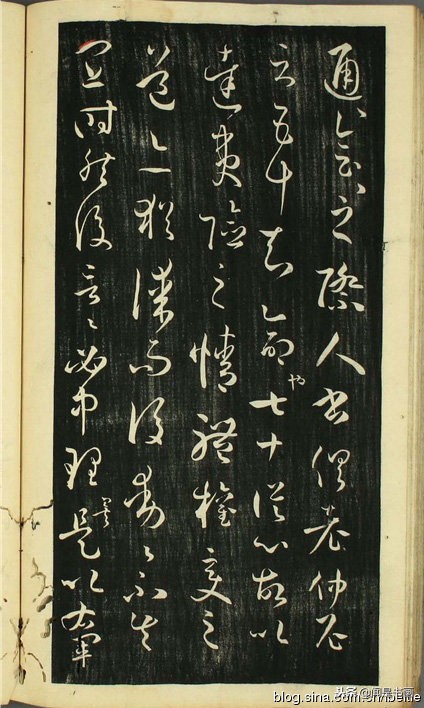 通會之際人書俱老仲尼
云五十知命也七十從心故以
達夷險之情體權變之
道亦猶謀而後動々不失
宜時然後言々必中理矣是以右軍
头条@闻是书画
blog.sina.com.cn/beitie